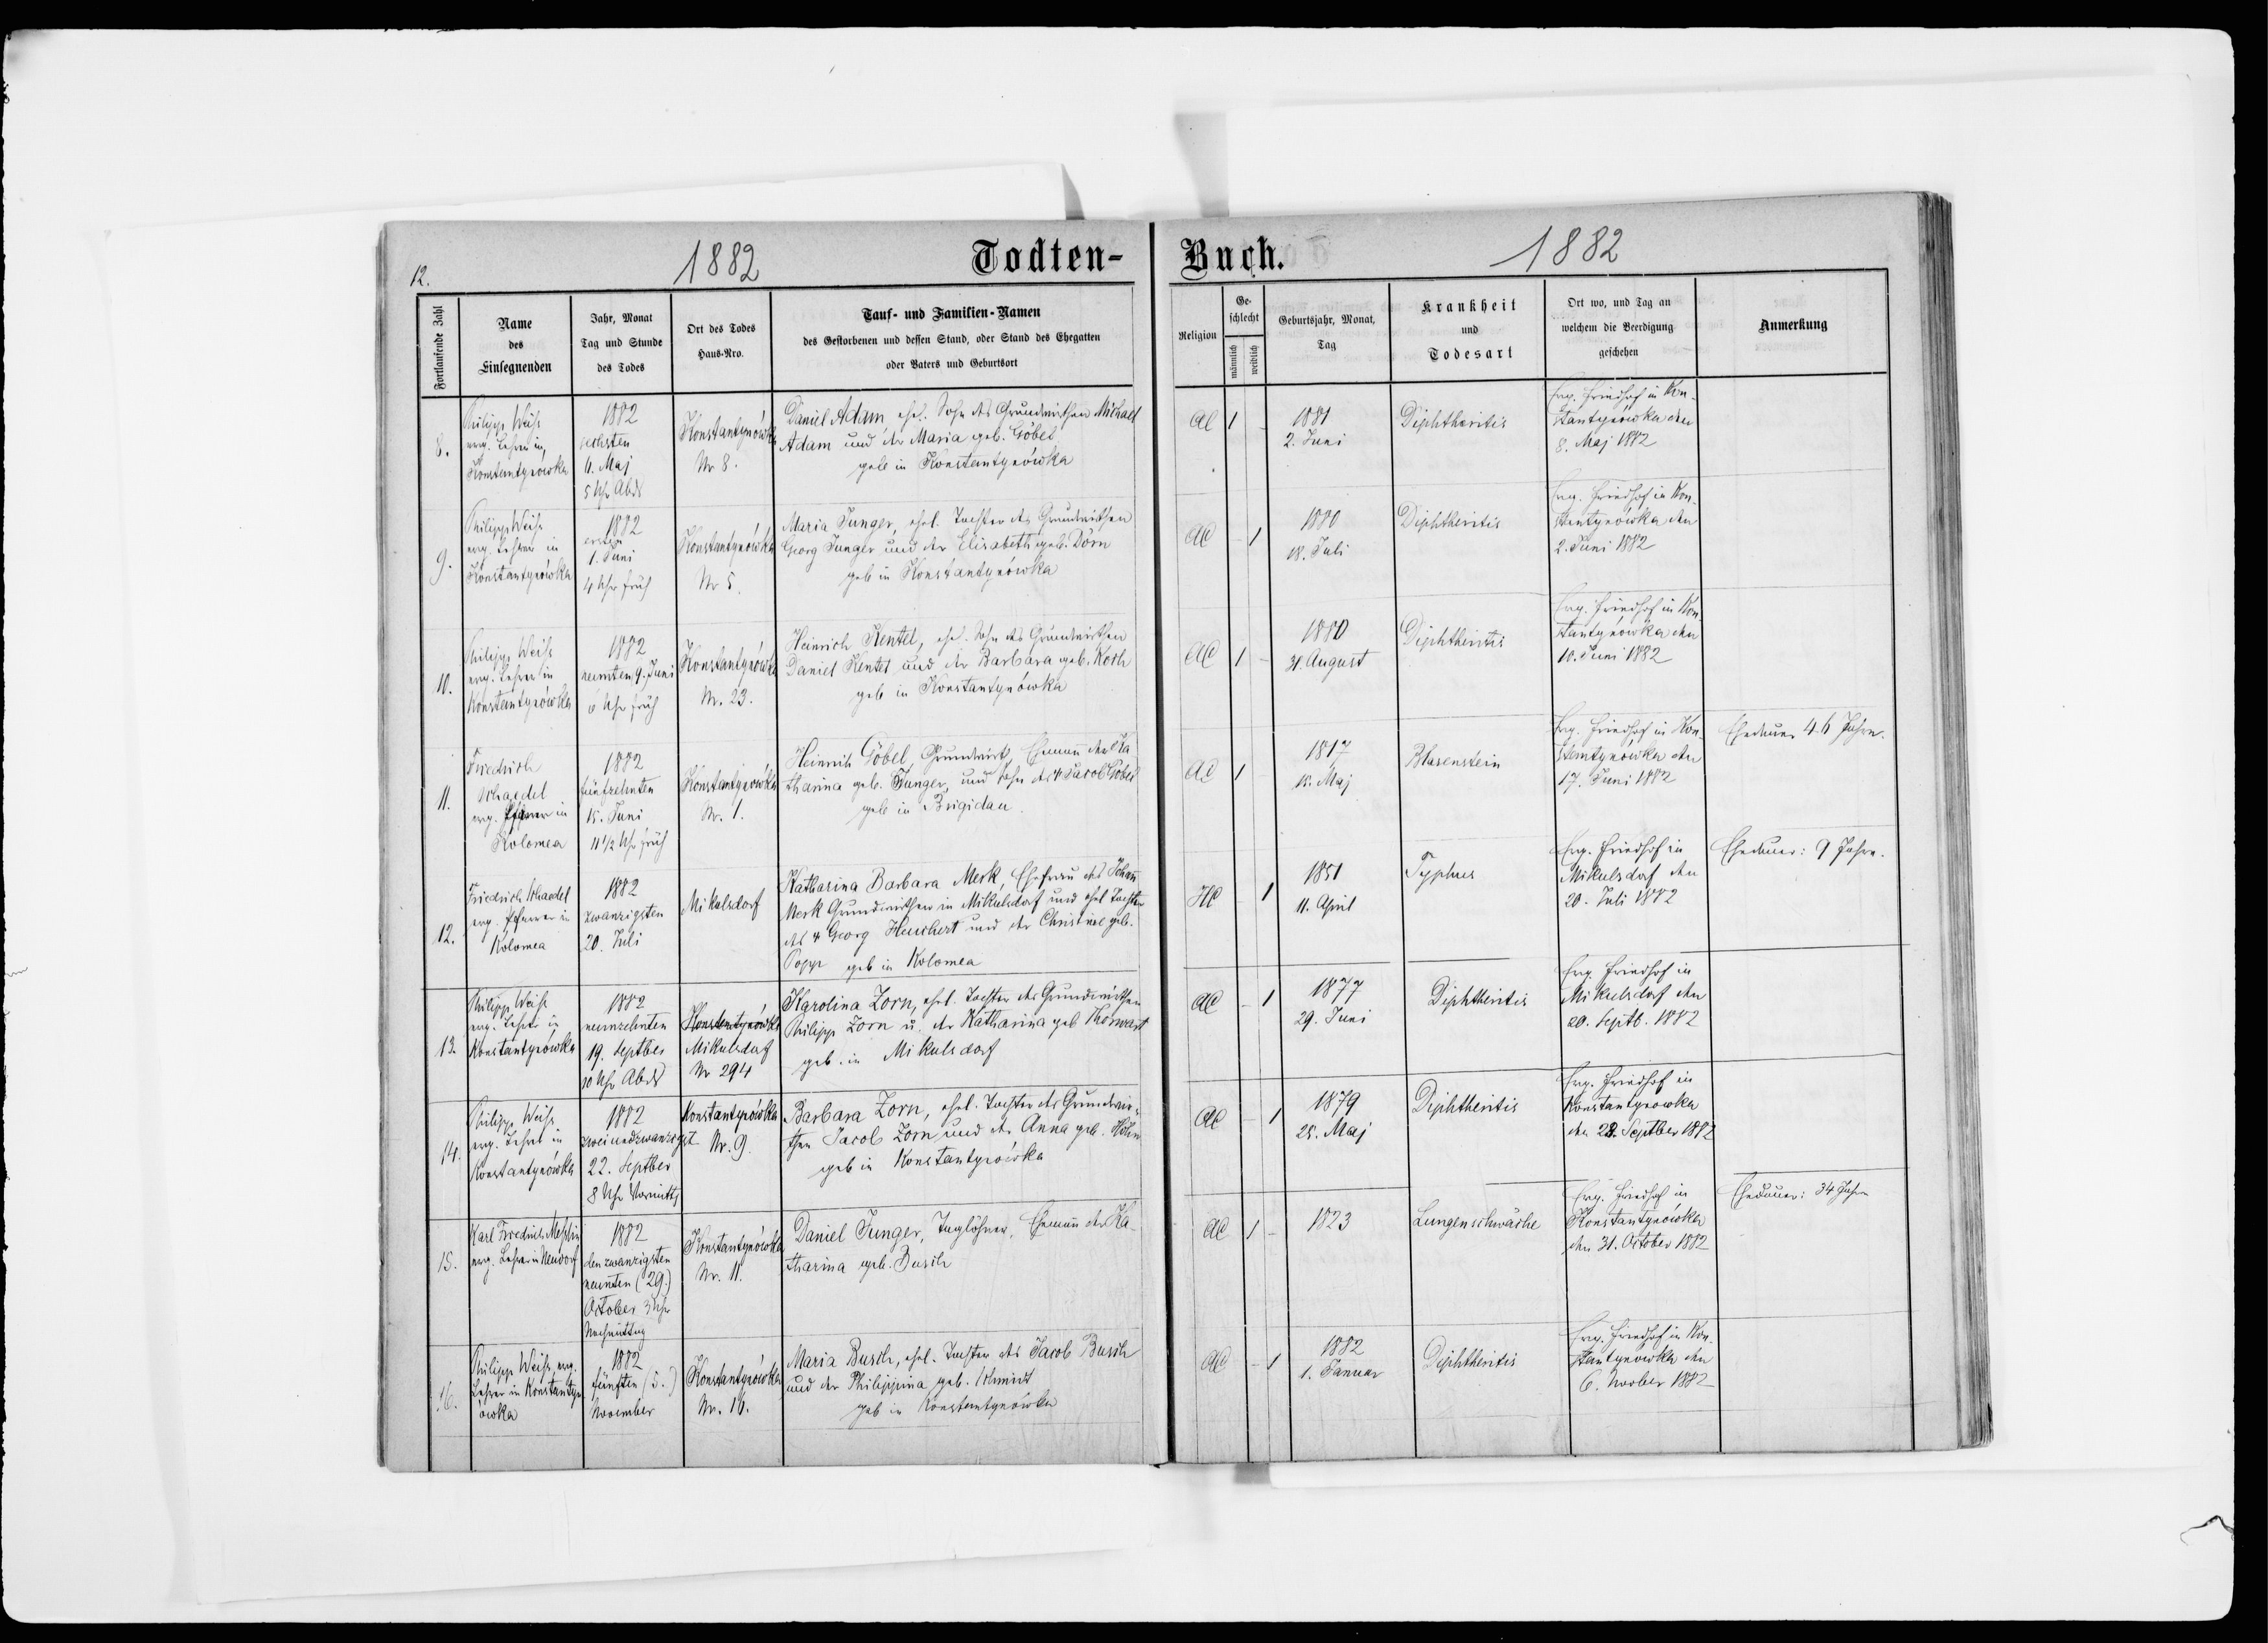 12.
1882
Todten-
Buch.
1882
Fortlaufende Zahl
Name
des
Einsegnenden
Jahr, Monat
Tag und Stunde
des Todes
Ort des Todes
Haus-Nro.
Tauf- und Familien-Namen
des Gestorbenen und dessen Stand, oder Stand des Ehegatten
oder Vaters und Geburtsort
Religion
Ge-
schlecht
männlich
weiblich
Geburtsjahr, Monat,
Tag
Krankheit
und
Todesart
Ort wo, und Tag an
welchem die Beerdigung
geschehen
Anmerkung
8.
Philipp Weiß
evg. Lehrer in
Konstantynówka
1882
sechsten
6. Maj
5 Uhr Abds
Konstantynówka
Nr 8.
Daniel Adam, ehel. Sohn des Grundwirthen Michael
Adam und der Maria geb. Göbel
geb in Konstantynówka
AC
1
-
1881
2. Juni
Diphtheritis
Evg. Friedhof in Kon-
stantynówka den
8. Maj 1882
9.
Philipp Weiß
evg. Lehrer in
Konstantynówka
1882
ersten
1. Juni
4 Uhr früh
Konstantynówka
Nr 5.
Maria Junger, ehel. Tochter des Grundwirthen
Georg Junger und der Elisabeth geb. Dörn
geb in Konstantynówka
AC
-
1
1880
18. Juli
Diphtheritis
Evg. Friedhof in Kon-
stantynówka den
2. Juni 1882
10.
Philipp Weiß
evg. Lehrer in
Konstantynówka
1882
neunten 9. Juni
6 Uhr früh
Konstantynówka
Nr. 23.
Heinrich Kentel, ehel. Sohn des Grundwirthen
Daniel Kentel und der Barbara geb. Koth
geb in Konstantynówka
AC
1
-
1880
31. August
Diphtheritis
Evg. Friedhof in Kon-
stantynówka den
10. Juni 1882
11.
Friedrich
Schaedel
evg. Pfarrer in
Kolomea
1882
fünfzehnten
15. Juni
11 1/2 Uhr früh
Konstantynówka
Nr. 1.
Heinrich Göbel, Grundwirt, Ehemann der Ka-
tharina geb. Junger, und Sohn des Jacob Göbel
geb in Brigidau.
AC
1
-
1817
15. Maj
Blasenstein
Evg. Friedhof in Kon-
stantynówka den
17. Juni 1882
Ehedauer 46 Jahre.
12.
Friedrich Schaedel
evg. Pfarrer in
Kolomea
1882
zwanzigsten
20. Juli
Mikulsdorf
Katharina Barbara Merk, Ehefrau des Johann
Merk Grundwirthen in Mikulsdorf und ehel Tochter
des Georg Heuchert und der Christine geb.
Popp geb in Kolomea
HC
-
1
1851
11. April
Typhus
Evg. Friedhof in
Mikulsdorf den
20. Juli 1882
Ehedauer: 9 Jahre.
13.
Philipp Weiß
evg. Lehrer in
Konstantynówka
1882
neunzehnten
19. Septber
10 Uhr Abds
Konstantynówka
Mikulsdorf
Nr 294
Karolina Zorn, ehel. Tochter des Grundwirthen
Philipp Zorn u. der Katharina geb Thorwart
geb. in Mikulsdorf
AC
-
1
1877
29. Juni
Diphtheritis
Evg. Friedhof in
Mikulsdorf den
20. Septb. 1882
14.
Philipp Weiß
evg. Lehrer in
Konstantynówka
1882
zweiundzwanzigst
22. Septber
8 Uhr Vormittg
Konstantynówka
Nr. 9.
Barbara Zorn, ehel. Tochter des Grundwir-
then Jacob Zorn und der Anna geb. Höhn
geb in Konstantynówka
AC
-
1
1879
25. Maj
Diphtheritis
Evg. Friedhof in
Konstantynowka
den 23. Septber 1882
15.
Karl Friedrich
evg. Lehrer in Neudorf
1882
den zwanzigsten
neunten (29.)
October 3 Uhr
Nachmittag
Konstantynówka
Nr. 11.
Daniel Junger, Taglöhner, Ehemann der Ka-
tharina geb. Busch
AC
1
-
1823
Lungenschwäche
Evg. Friedhof in
Konstantynówka
den 31. October 1882
Ehedauer: 34 Jahre
16.
Philipp Weiß, evg.
Lehrer in Konstantyn
ówka
1882
fünften (5.)
November
Konstantynówka
Nr. 16.
Maria Busch, ehel. Tochter des Jacob Busch
und der Philippina geb. Schmidt
geb in Konstantynówka
AC
-
1
1882
1. Januar
Diphtheritis
Evg. Friedhof in Kon-
stantynowka den
6. Novber 1882